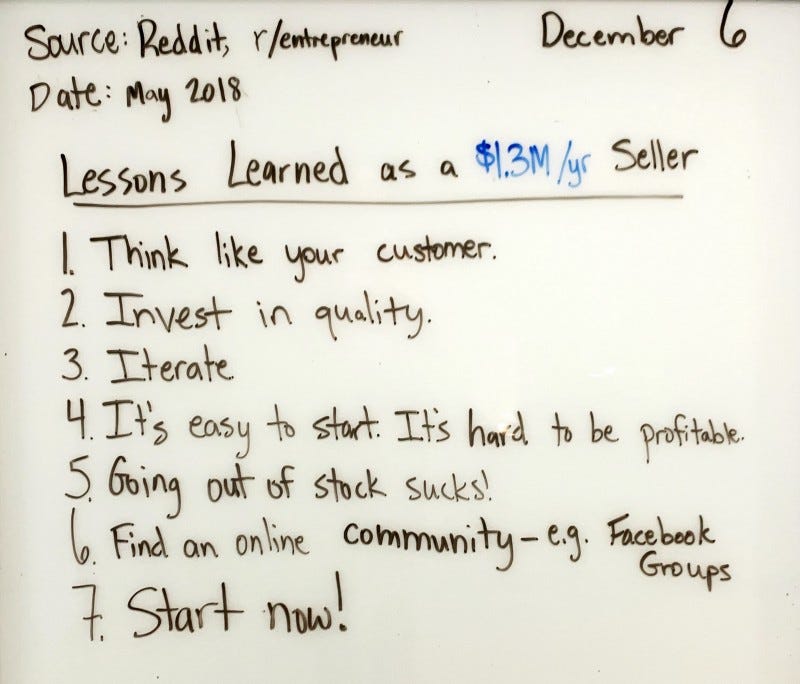 Source: Reddit, r/entrepreneur December 6
Date: May 2018
Lessons Learned as a $1.3M/yr Seller
1. Think like your customer.
2. Invest in quality.
3. Iterate
4. It's easy to start. It's hard to be profitable.
5. Going out of stock sucks!
6. Find an online community - e.g. Facebook
Groups
7. Start now!